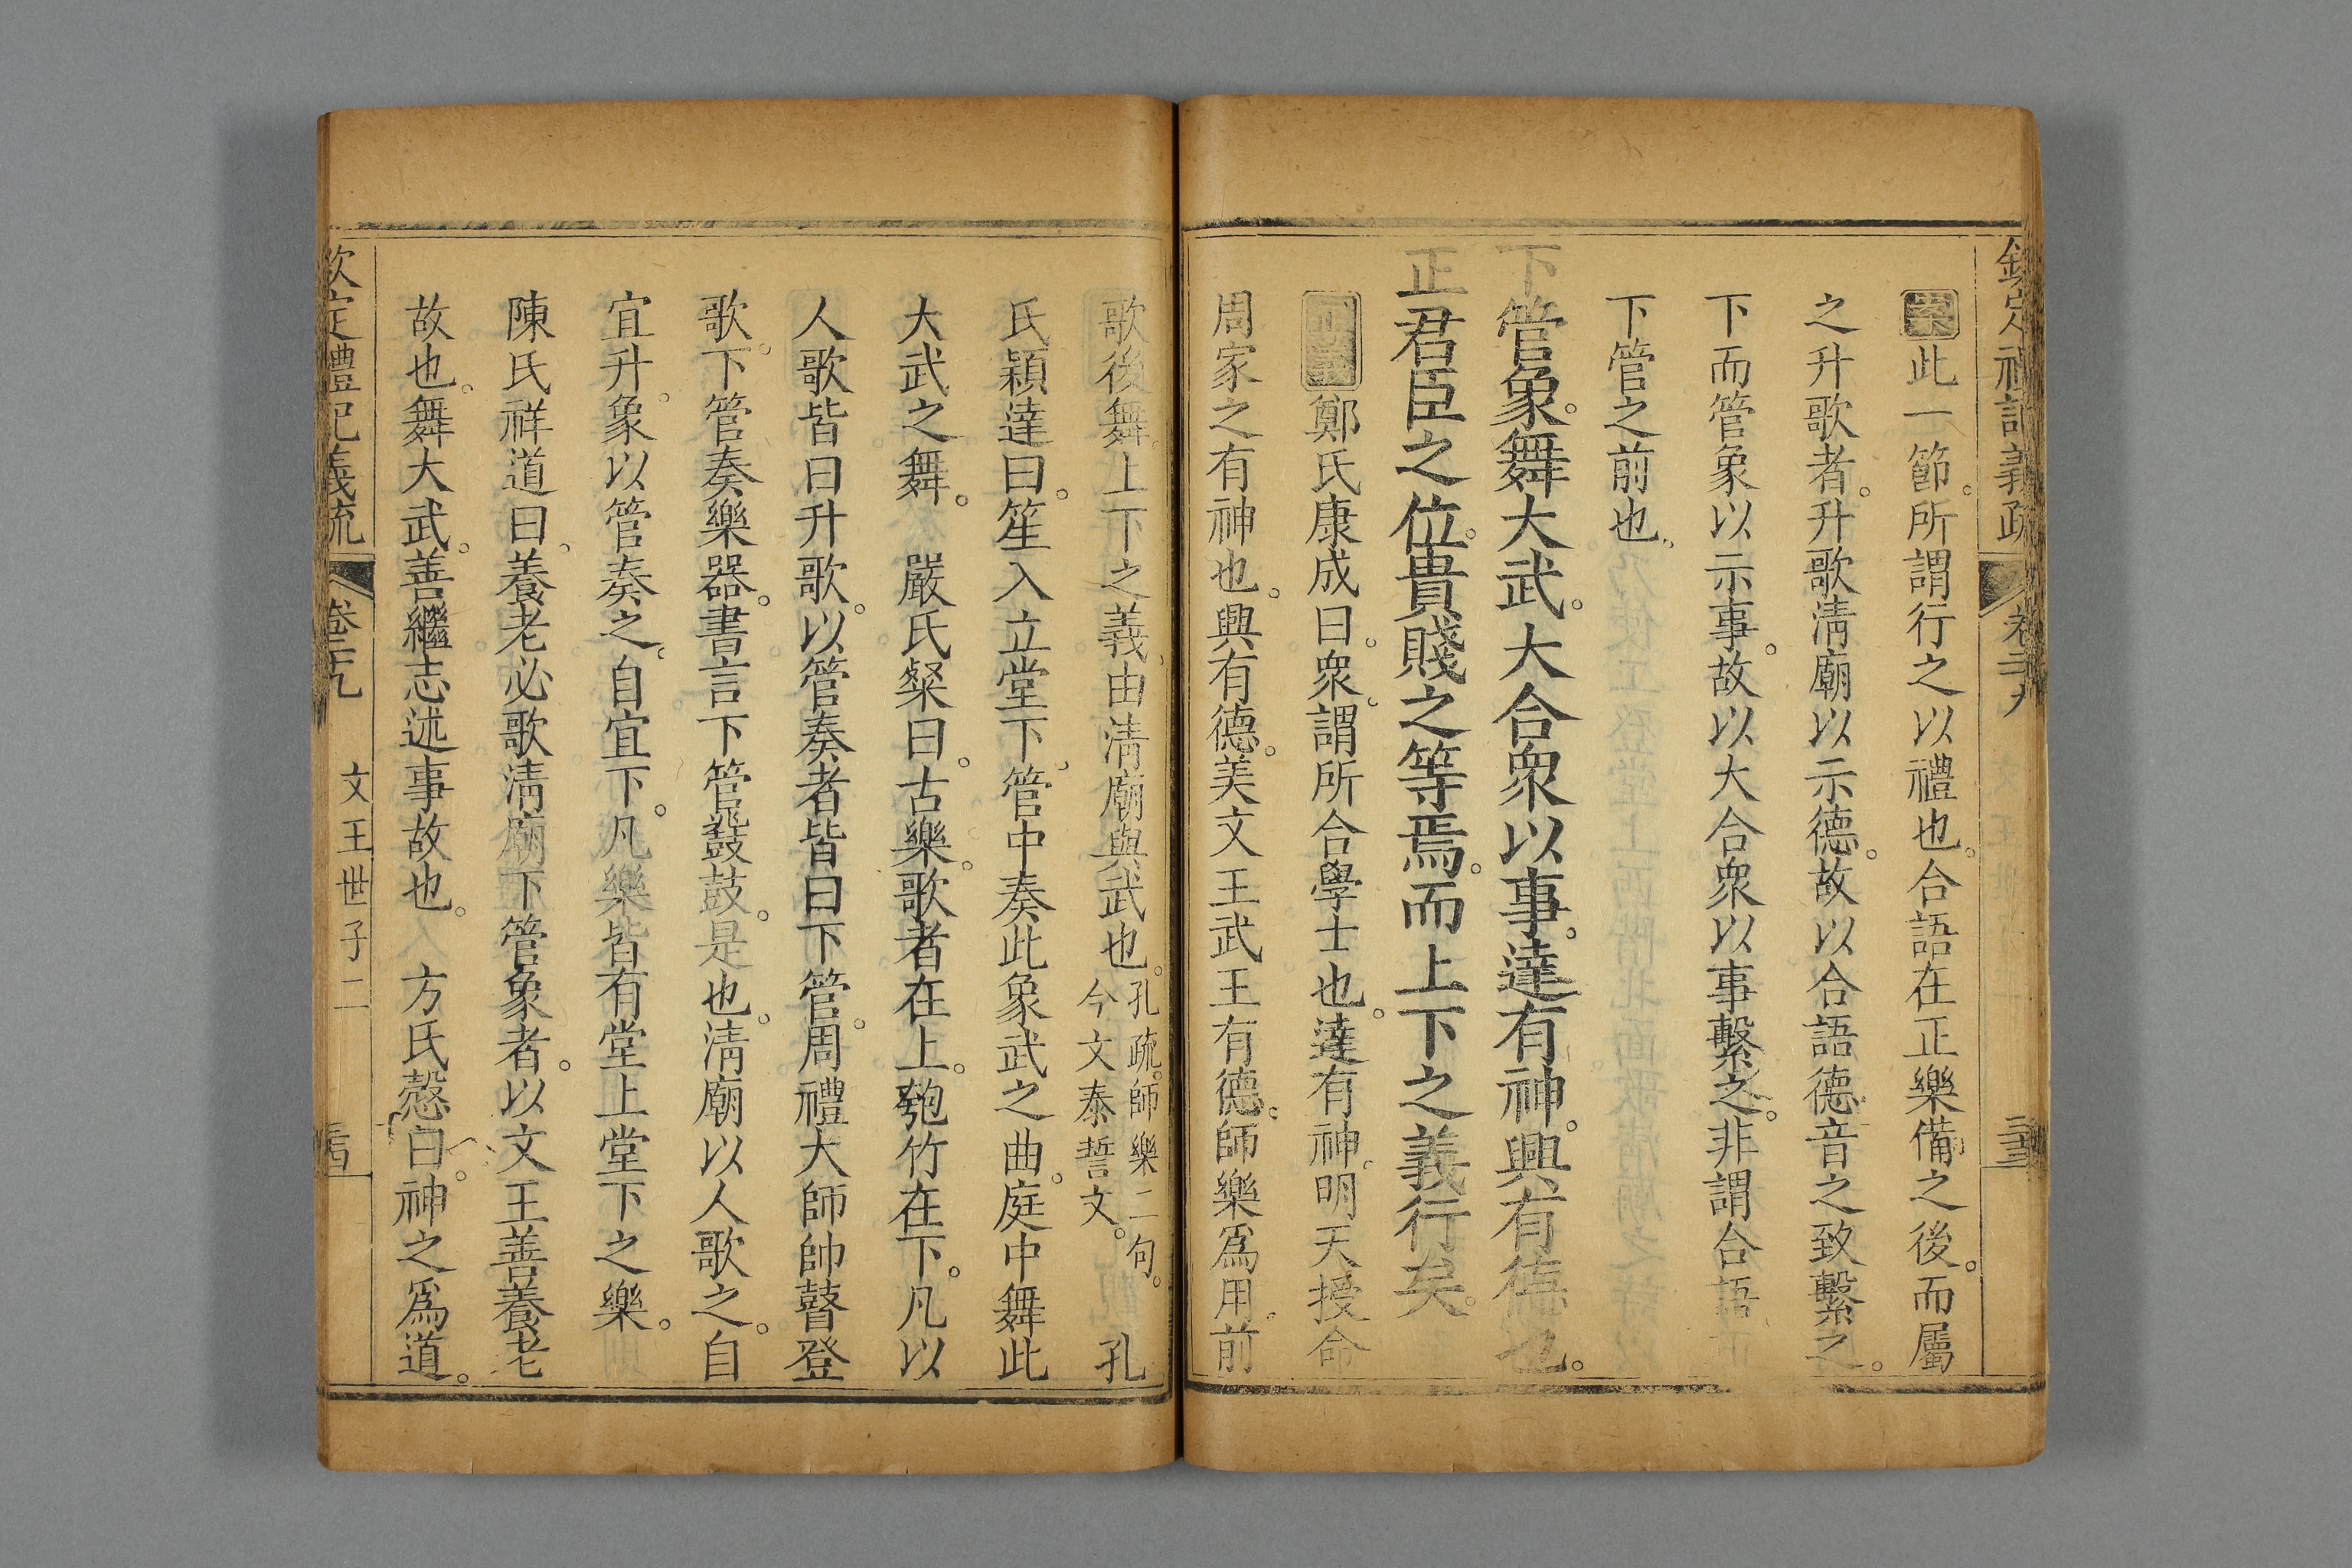 欽定禮記義疏 卷二十九
案此一節。所謂行之以禮也。合語在正樂備之後。而屬
之升歌者。升歌淸廟以示德。故以合語德音之致繫之。
下而管象以示事。故以大合衆以事繫之。非謂合語
下管之前也。
下管象。舞大武。大合衆以事。達有神。興有德也。
正君臣之位。貴賤之等焉。而上下之義行矣。
正義鄭氏康成曰。衆。謂所合學士也。達有神。明天授命
周家之有神也。興有德。美文王武王有德。師樂爲用。前
歌後舞。上下之義。由淸廟與武也。孔疏。師樂二句。今文泰誓文。 孔
氏穎達曰。笙入立堂下。管中奏此象武之曲。庭中舞此
大武之舞。 嚴氏粲曰。古樂。歌者在上。匏竹在下。凡以
人歌皆曰升歌。以管奏者皆曰下管。周禮大師帥瞽登
歌。下管奏樂器。書言下管鼗鼓。是也。淸廟以人歌之。自
宜升。象以管奏之。自宜下。凡樂皆有堂上堂下之樂。
陳氏祥道曰。養老必歌淸廟下管象者。以文王善養老
故也。舞大武。善繼志述事故也。 方氏慤曰。神之爲道。
欽定禮記義疏 卷二十九 文王世子二